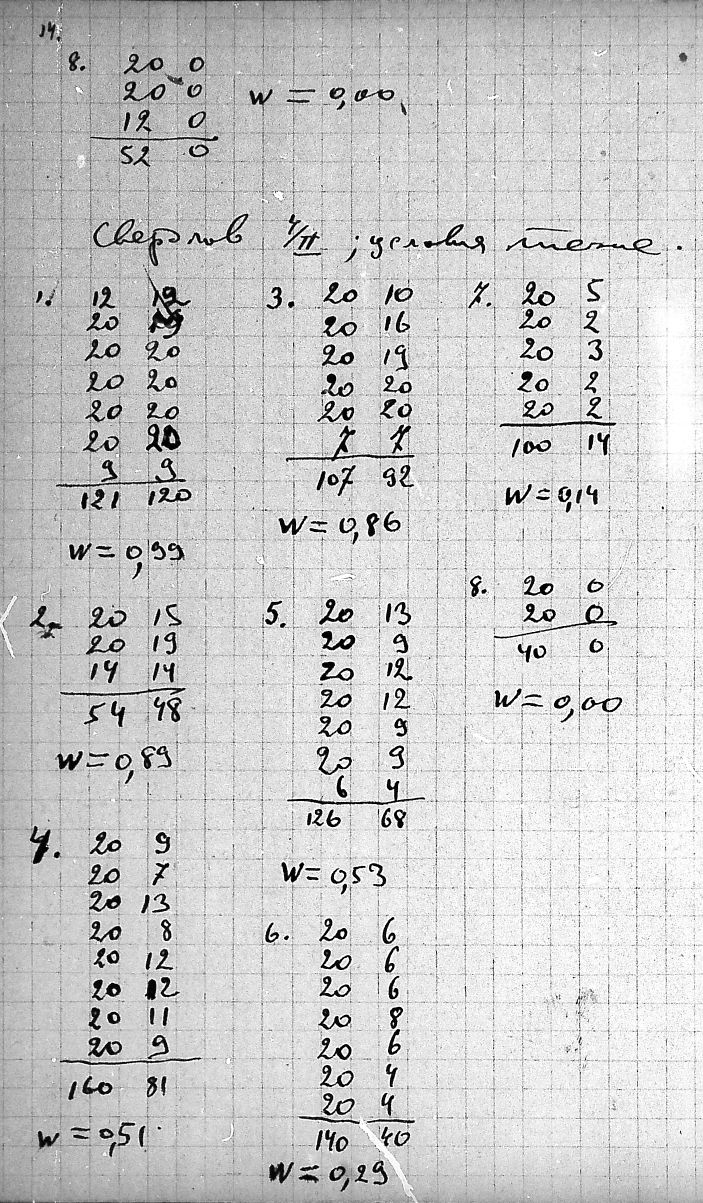 14.
8. 20 0
20 0
12 0
52 0
W = 0,00
Сверлов 4/II ; условия те же.
1. 12 12
20 19
20 20
20 20
20 20
20 20
9 9
121 120
W = 0,99
2. 20 15
20 19
14 14
54 48
W = 0,89
4. 20 9
20 7
20 13
20 8
20 12
20 12
20 11
20 9
160 81
W = 0,51
3. 20 10
20 16
20 19
20 20
20 20
7 7
107 92
W = 0,86
5. 20 13
20 9
20 12
20 12
20 9
20 9
6 4
126 68
W = 0,53
6. 20 6
20 6
20 6
20 8
20 6
20 4
20 4
140 40
W = 0,29
7. 20 5
20 2
20 3
20 2
20 2
100 14
W = 0,14
8. 20 0
20 0
40 0
W = 0,00